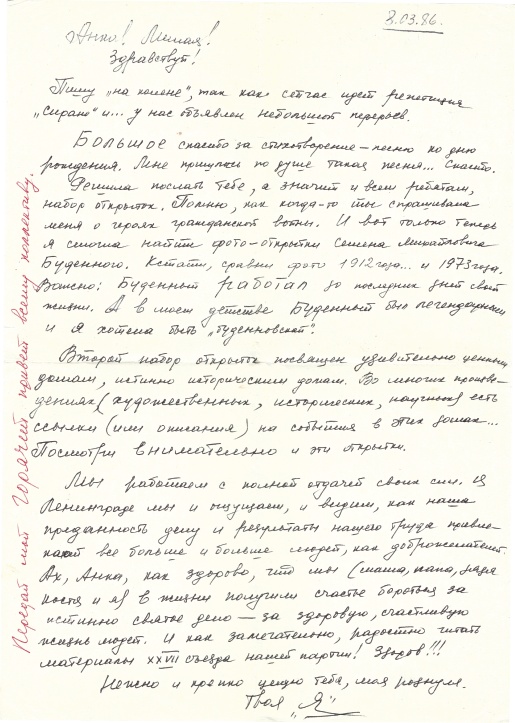 8.03.86.
Анка! Милая!
Здравствуй!
Пишу „на колене", так как сейчас идёт репетиция
„Сирано" и... у нас объявлен небольшой перерыв.
Большое спасибо за стихотворение – песню ко дню
рождения. Мне пришлась по душе такая песня... Спасибо.
Решила послать тебе, а значит и всем ребятам,
набор открыток. Помню, как когда-то ты спрашивала
меня о героях гражданской войны. И вот только теперь
я смогла найти фото-открытки Семёна Михайловича
Будённого. Кстати, сравни фото 1912 года... и 1973 года.
Важно: Будённый работал до последних дней своей
жизни. А в моём детстве Будённый был легендарным
и я хотела быть „будённовской".
Второй набор открыток посвящён удивительно ценным
домам, истинно историческим домам. Во многих произве-
дениях (художественных, исторических, научных) есть
ссылки (или описания) на события в этих домах...
Посмотри внимательно и эти открытки.
Мы работаем с полной отдачей своих сил. И в
Ленинграде мы и ощущаем, и видим, как наша
преданность делу и результаты нашего труда привле-
кают всё больше и больше людей, как доброжелателей.
Ах, Анка, как здорово, что мы (мама, папа, дядя
Костя и я) в жизни получили счастье бороться за
истинно святое дело – за здоровую, счастливую
жизнь людей. И как замечательно, радостно читать
материалы XXVII съезда нашей партии! Здоров!!!
Нежно и крепко целую тебя, моя роднуля.
Твоя „Я"
Передай мой горячий привет всему коллективу.